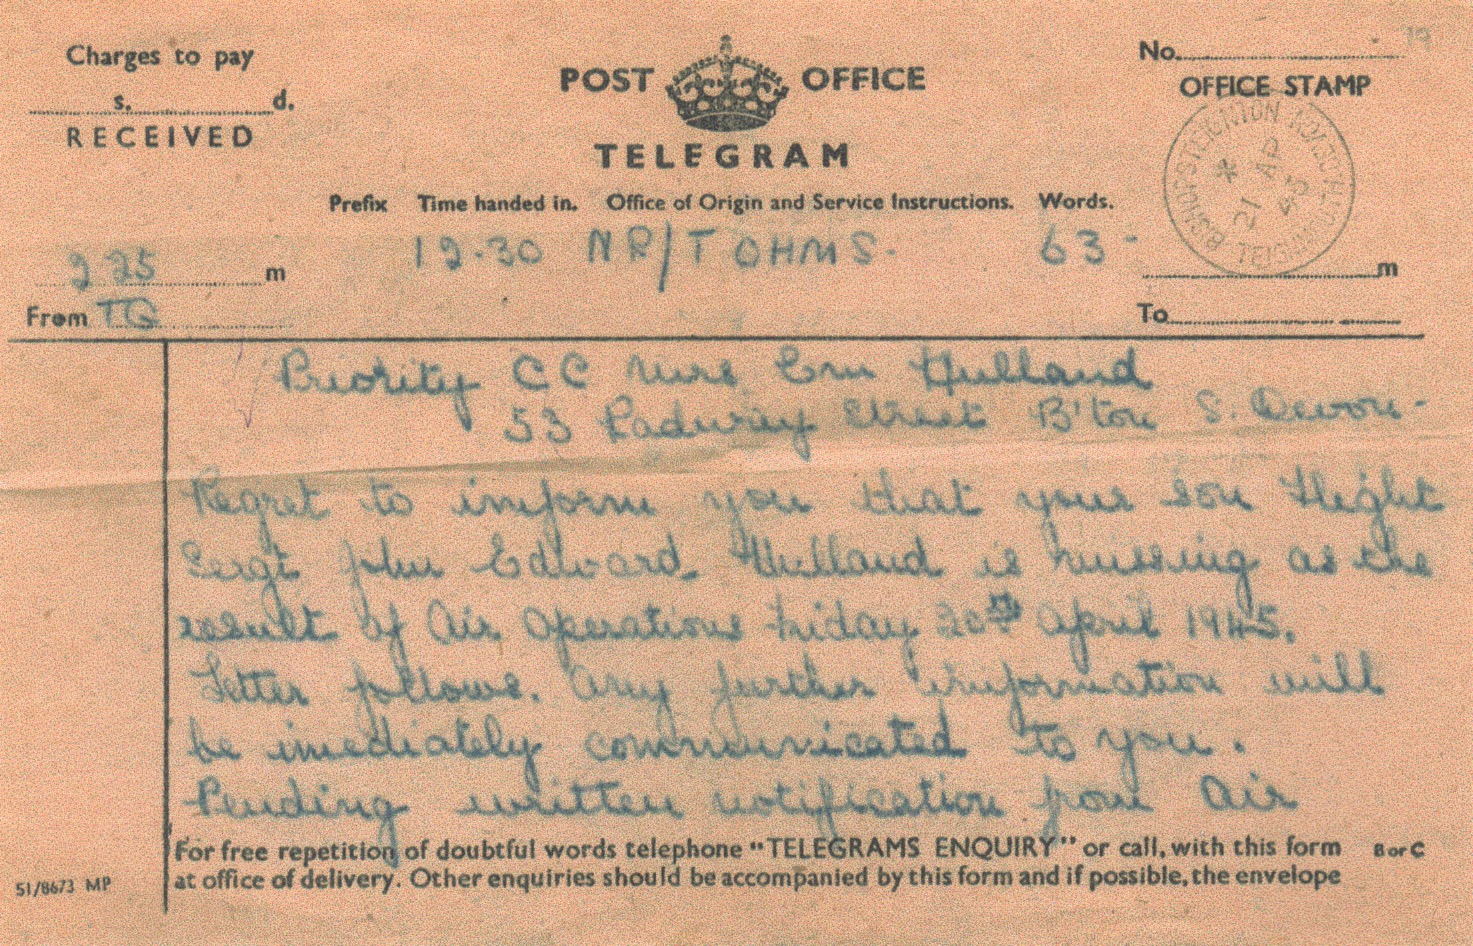 Charges to pay
s. d.
RECEIVED
POST OFFICE
TELEGRAM
No.
OFFICE STAMP
BISHOPSTEIGNTON TEIGNMOUTH
* 21 AP 45
Prefix Time handed in. Office of Origin and Service Instructions. Words.
2 25 m
12.30 NR/T OHMS. 63 -
m
From TG
To
Priority CC Mrs Em Hulland
53 Radway Street B'ton S. Devon -
Regret to inform you that your son Flight
Sergt John Edward Hulland is missing as the
result of Air Operations Friday 20th April 1945.
Letter follows. Any further information will
be imediately communicated to you.
Pending written notification from Air
For free repetition of doubtful words telephone "TELEGRAMS ENQUIRY" or call, with this form
at office of delivery. Other enquiries should be accompanied by this form and if possible, the envelope
B or C
51/8673 MP